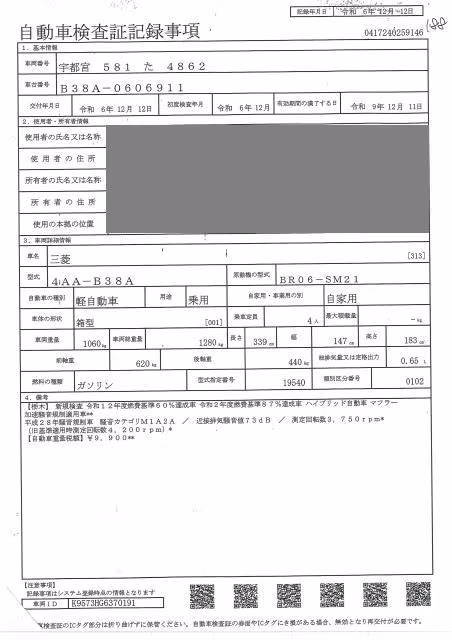 記録年月日 令和 6年 12月 12日
自動車検査証記録事項 0417240259146 188
1. 基本情報
車両番号 宇都宮 581 た 4862
車台番号 B38A-0606911
交付年月日 令和 6年 12月 12日 初度検査年月 令和 6年 12月 有効期間の満了する日 令和 9年 12月 11日
2. 使用者・所有者情報
使用者の氏名又は名称
使用者の住所
所有者の氏名又は名称
所有者の住所
使用の本拠の位置
3. 車両詳細情報
車名 三菱 [313]
型式 4AA-B38A 原動機の型式 BR06-SM21
自動車の種別 軽自動車 用途 乗用 自家用・事業用の別 自家用
車体の形状 箱型 [001] 乗車定員 4人 最大積載量 -kg
車両重量 1060kg 車両総重量 1280kg 長さ 339cm 幅 147cm 高さ 183cm
前軸重 620kg 後軸重 440kg 総排気量又は定格出力 0.65 L
燃料の種類 ガソリン 型式指定番号 19540 類別区分番号 0102
4. 備考
【栃木】 新規検査 令和12年度燃費基準60%達成車 令和2年度燃費基準87%達成車 ハイブリッド自動車 マフラー
加速騒音規制適用車**
平成28年騒音規制車 騒音カテゴリM1A2A / 近接排気騒音値73dB / 測定回転数3,750rpm*
(旧基準適用時測定回転数4,200rpm)*
【自動車重量税額】¥9,900**
【注意事項】
記録事項はシステム登録時点の情報となります
車両ID K9573HG6370191
検査証のICタグ部分は折り曲げずに保管ください。自動車検査証の券面やICタグに各損がある場合、無効となり再交付が必要です。